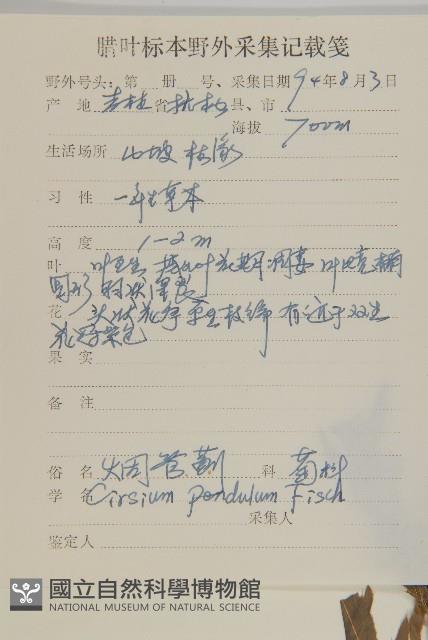 腊叶标本野外采集记载笺
野外号头：第 册 号、采集日期94年8月3日
产 地 吉林省抚松县、市
海拔 700m
生活场所 山坡林缘
习 性 一年生草本
高 度 1-2m
叶 叶互生 基生叶花期凋萎 叶椭圆形
花 头状花序 单生枝端 有近于双生
花紫色
果 实
备 注
俗 名 烟管蓟 科 菊科
学 名 Cirsium pendulum Fisch
采集人
鉴定人
國立自然科學博物館
NATIONAL MUSEUM OF NATURAL SCIENCE